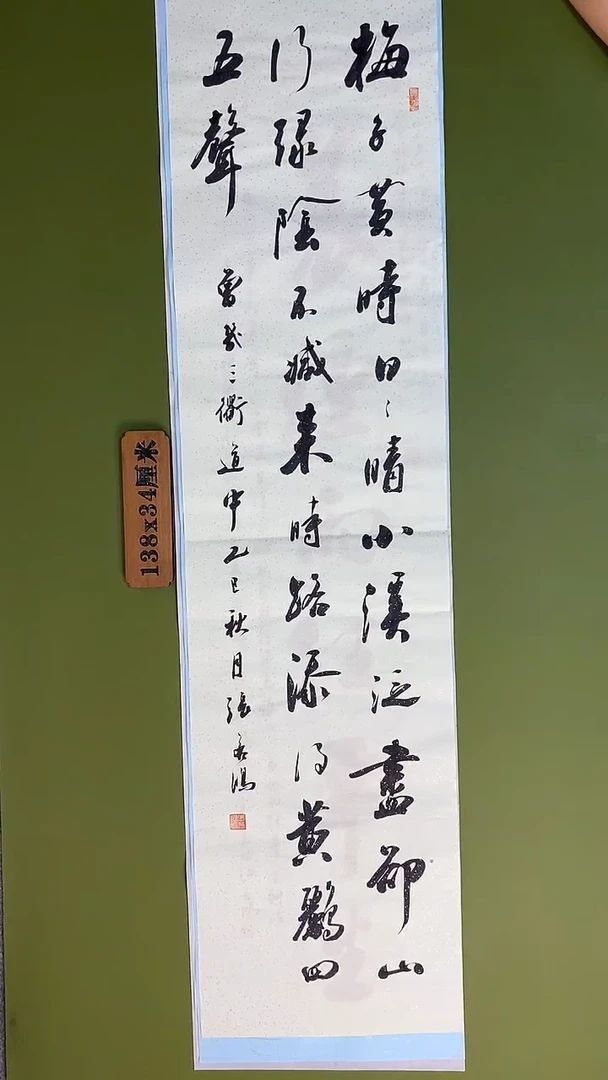 梅子黄時日〻晴小溪泛盡卻山
行綠陰不減來時路添得黄鸝四
五聲 曾幾三衢道中乙巳秋月張
138x34厘米